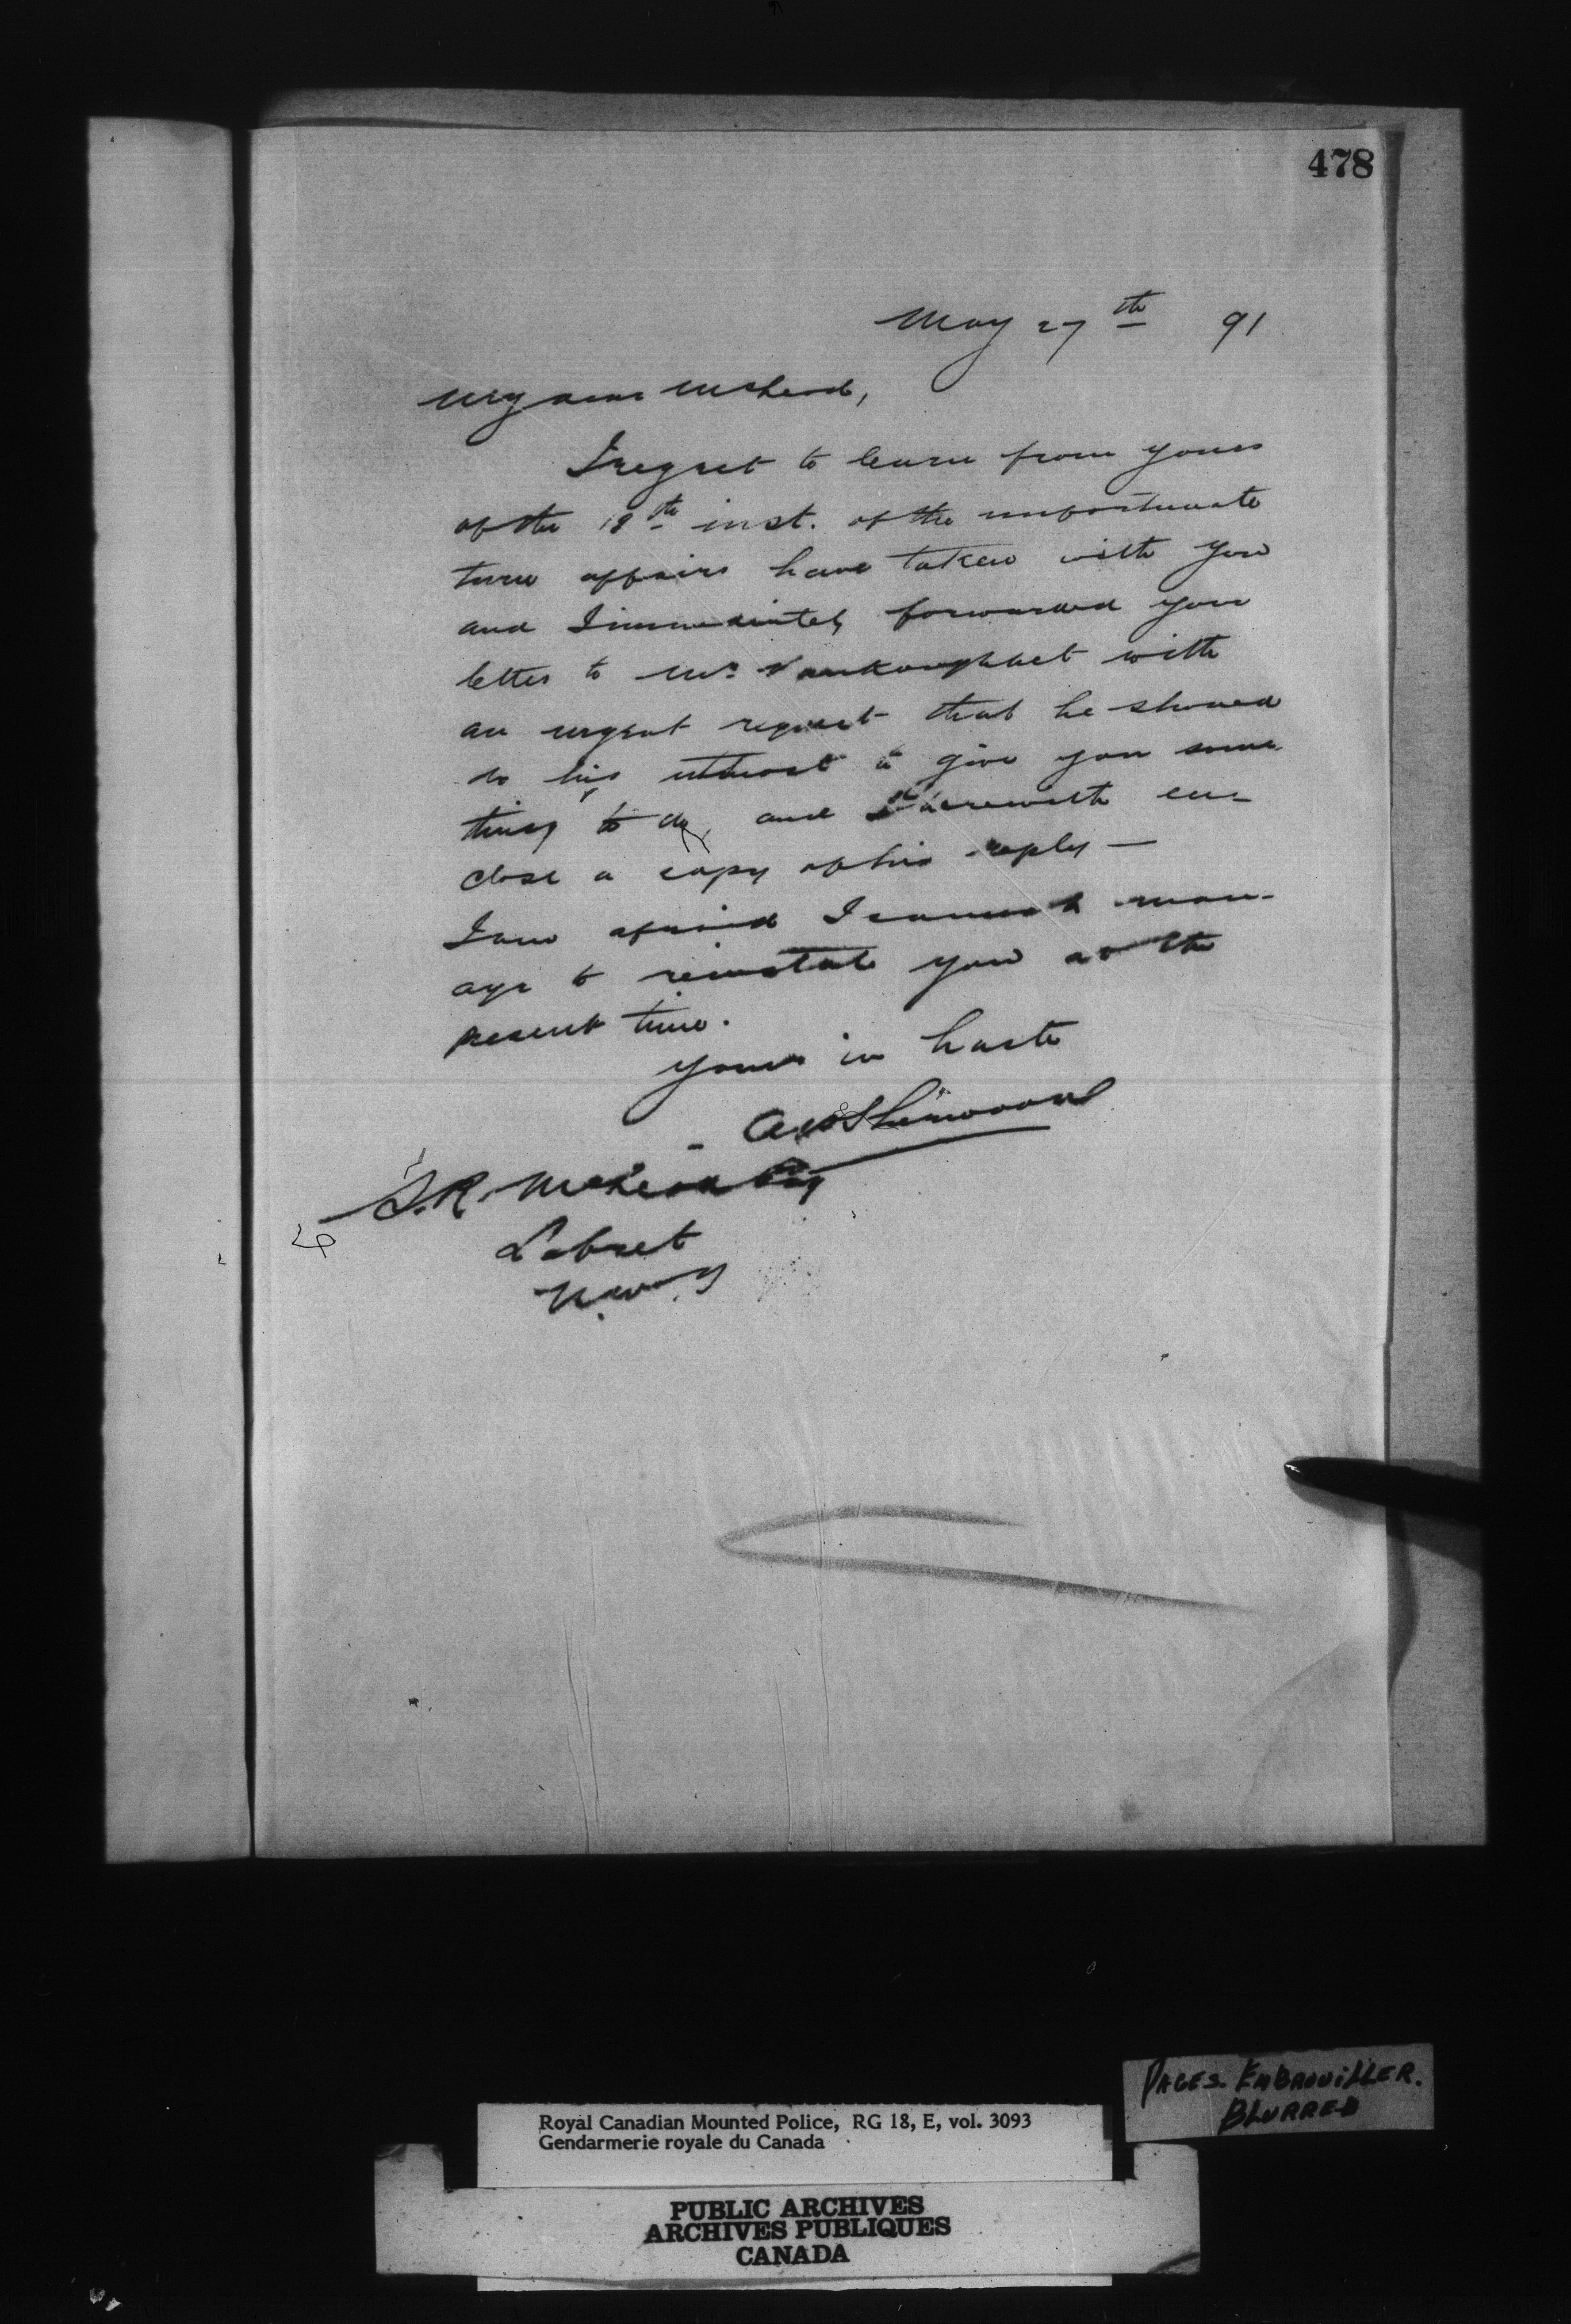 478
May 27th 91
My dear McLeod,
I regret to learn from yours
of the 18th inst. of the unfortunate
turn affairs have taken with you
and I immediately forwarded your
letter to Mr. Vankoughnet with
an urgent request that he should
do his utmost to give you some
thing to do, and I herewith en-
close a copy of his reply —
I am afraid I cannot man-
age to reinstate you at the
present time.
Yours in haste
A P Sherwood
McLeod Esq
Lebret
N.W.T
PAGES. EMBROUILLER.
BLURRED
Royal Canadian Mounted Police, RG 18, E, vol. 3093
Gendarmerie royale du Canada
PUBLIC ARCHIVES
ARCHIVES PUBLIQUES
CANADA